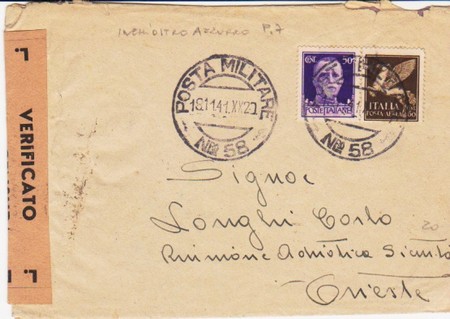 INCHIOSTRO AZZURRO P.7
POSTA MILITARE
19.11.41.XX
No 58
CENT 50
POSTE ITALIANE
ITALIA
POSTA AEREA
No 58
VERIFICATO
Signor
Longhi Carlo
Riunione Adriatica Sicurtà
Trieste
20